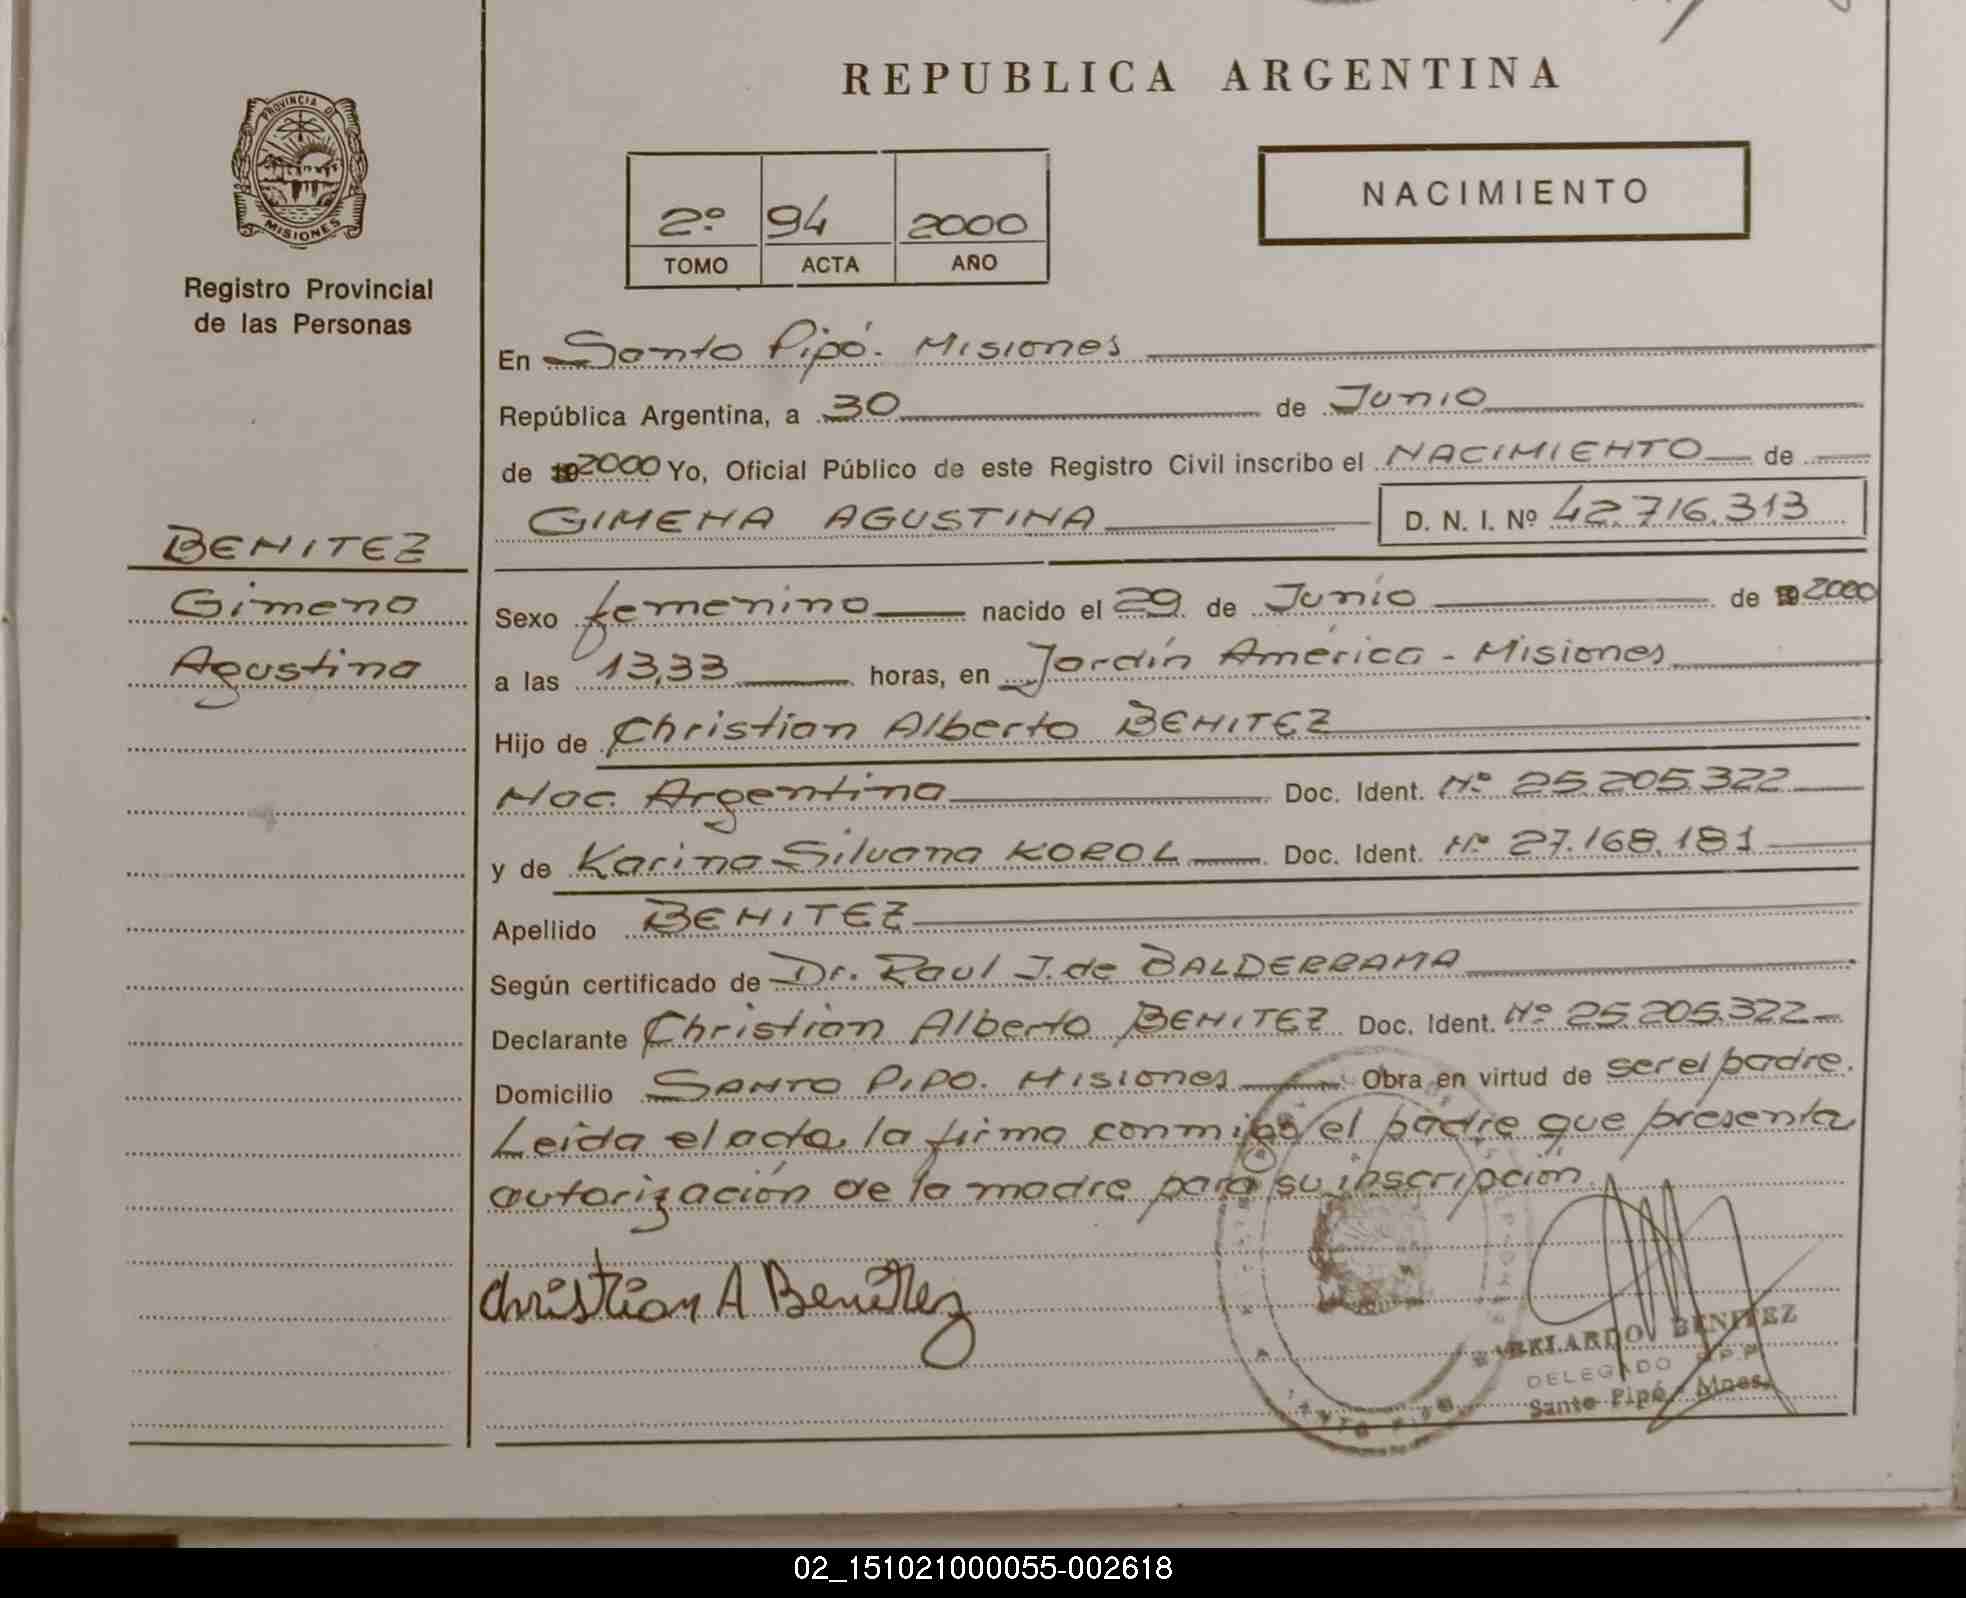 REPUBLICA ARGENTINA
PROVINCIA DE
MISIONES
Registro Provincial
de las Personas
2º 94 2000
TOMO ACTA AÑO
NACIMIENTO
En Santo Pipó. Misiones
República Argentina, a 30 de Junio
de 2000 Yo, Oficial Público de este Registro Civil inscribo el NACIMIENTO de
GIMENA AGUSTINA D. N. I. Nº 42.716.313
BENITEZ
Gimena
Agustina
Sexo femenino nacido el 29 de Junio de 2000
a las 13,33 horas, en Jardín América - Misiones
Hijo de Christian Alberto BENITEZ
Nac. Argentina Doc. Ident. Nº 25.205.322
y de Karina Silvana KOROL Doc. Ident. Nº 27.168.181
Apellido BENITEZ
Según certificado de Dr. Raul J. de BALDERRAMA
Declarante Christian Alberto BENITEZ Doc. Ident. Nº 25.205.322
Domicilio SANTO PIPO. Misiones Obra en virtud de ser el padre.
Leida el acta, la firma conmigo el padre que presenta
autorización de la madre para su inscripción.
Christian A Benitez
ABELARDO BENITEZ
DELEGADO R.P.P.
Santo Pipó - Mnes.
02_151021000055-002618